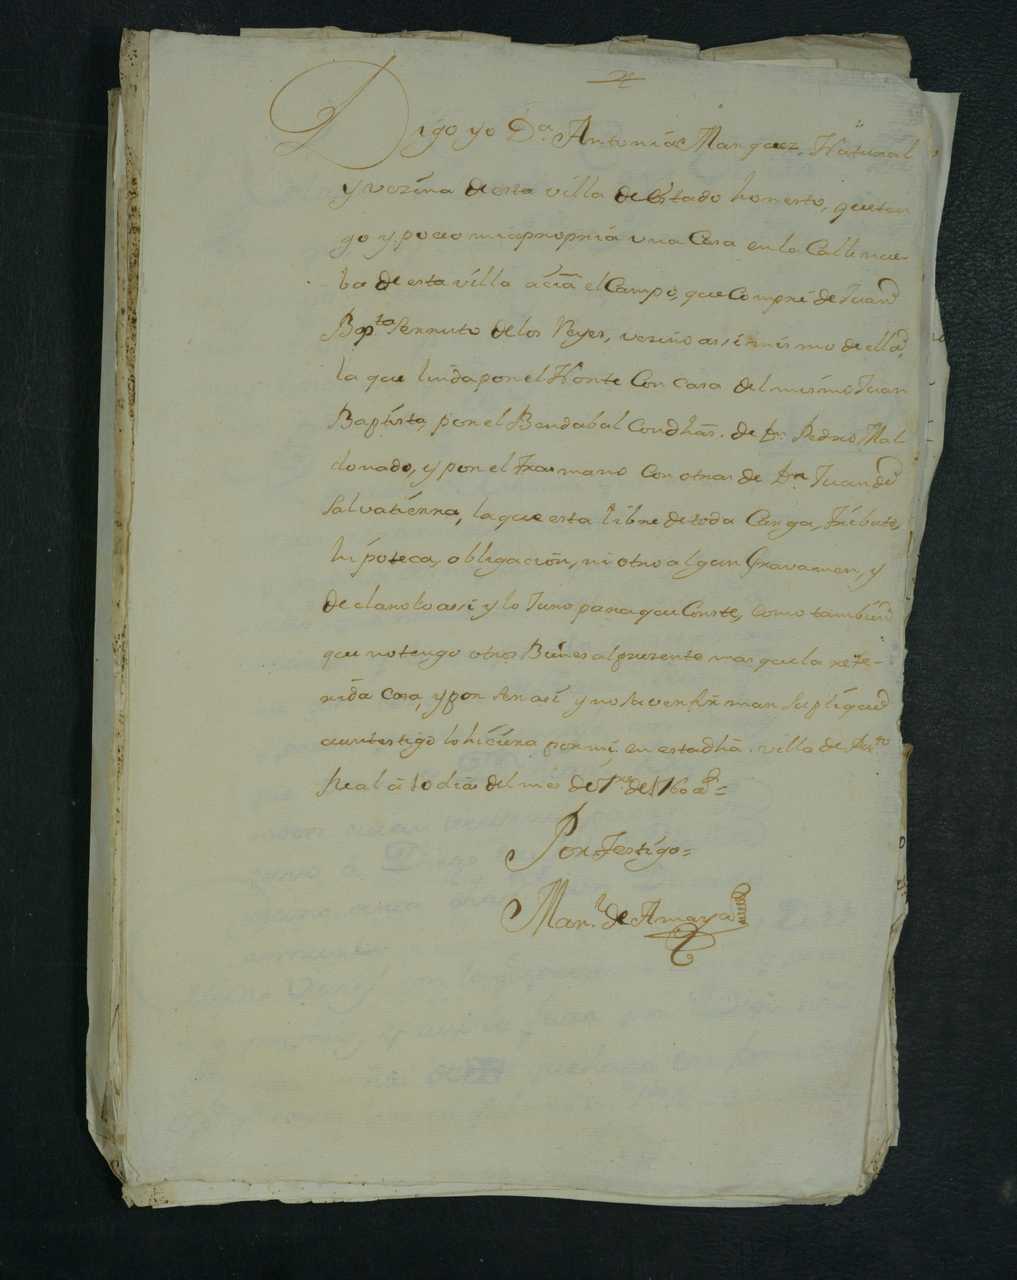 Digo yo D.ª Antonia Marquez Natural
y vezina de esta villa de estado honesto, que ten
go y poceo mia propria una Casa en la Calle nue-
ba de esta villa acia el Campo, que Compré de Juan
Bap.ta Serruto de los Reyes, vezino assi mismo de ella,
la que linda por el Norte Con casa del mismo Juan
Baptista, por el Bendabal Con dhãs. de Dn. Pedro Mal
donado, y por el Trasmano Con otras de Dn. Juan de
Salvatierra, la que esta libre de toda Carga, Tributo,
hipoteca, obligacion, ni otro algun Gravamen, y
declarolo assi y lo Juro para que Conste, como tambien
que no tengo otros Bienes al presente mas que la refe-
rida casa, y por ser asi y no saver firmar supliqué
a un testigo lo hiciera por mi. en esta dhã. villa de Pto
Real á 10 dias del mes de de 1760 as=
Por Testigo=
Man.l de Amaya